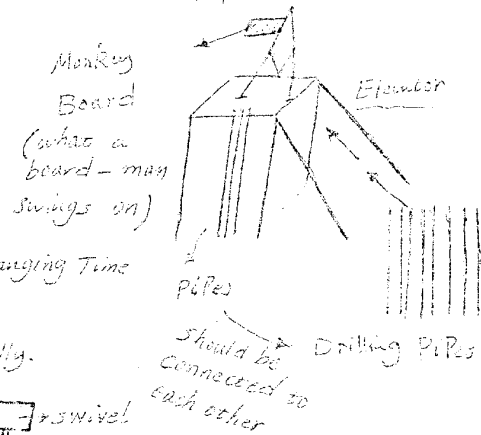 Monkey
Board
(what a
board-man
swings on)
Elevator
anging Time
Pipes
should be
connected to
each other
Drilling Pipes
lly.
swivel